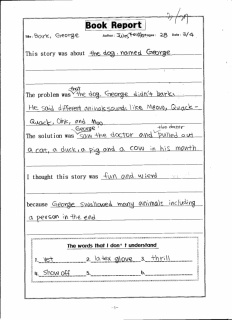 2/19
Book Report
Bark, George Author: Jules Pages: 28 Date: 2/4
This story was about the dog, named George
dog
The problem was the dog, George didn't bark.
He said different animal sounds like Meow, Quack-
Quack, Oink, and Moo
George the doctor
The solution was saw the doctor and pulled out
a cat, a duck, a pig and a cow in his mouth
I thought this story was fun and wierd
because George swallowed many animals including
a person in the end
The words that I don't understand
1. vet 2. latex glove 3. thrill
4. show off 5. 6.
-1-